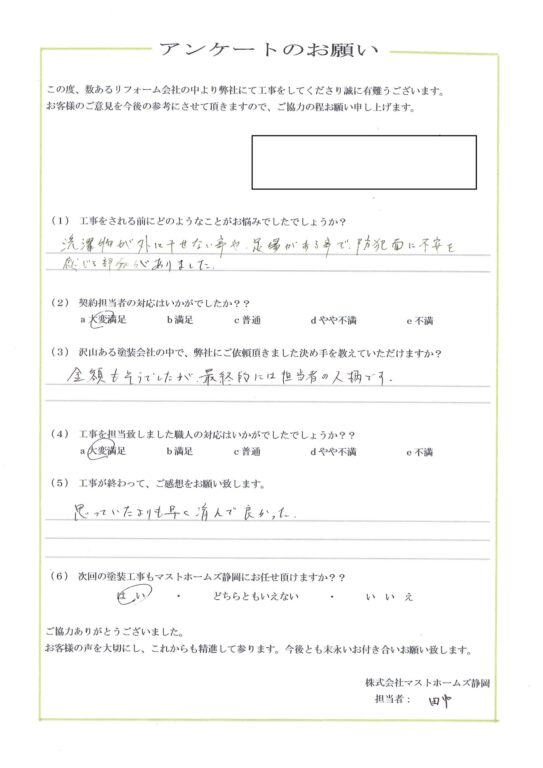 アンケートのお願い
この度、数あるリフォーム会社の中より弊社にて工事をしてくださり誠に有難うございます。
お客様のご意見を今後の参考にさせて頂きますので、ご協力の程お願い申し上げます。
(1) 工事をされる前にどのようなことがお悩みでしたでしょうか？
洗濯物が外に干せない事や、足場がある事で、防犯面に不安を
感じる部分がありました。
(2) 契約担当者の対応はいかがでしたか？？
a 大変満足 b 満足 c 普通 d やや不満 e 不満
(3) 沢山ある塗装会社の中で、弊社にご依頼頂きました決め手を教えていただけますか？
金額もそうでしたが、最終的には担当者の人柄です。
(4) 工事を担当致しました職人の対応はいかがでしたでしょうか？
a 大変満足 b 満足 c 普通 d やや不満 e 不満
(5) 工事が終わって、ご感想をお願い致します。
思っていたよりも早く済んで良かった。
(6) 次回の塗装工事もマストホームズ静岡にお任せ頂けますか？？
はい ・ どちらともいえない ・ いいえ
ご協力ありがとうございました。
お客様の声を大切にし、これからも精進して参ります。今後とも末永いお付き合いお願い致します。
株式会社マストホームズ静岡
担当者： 田中